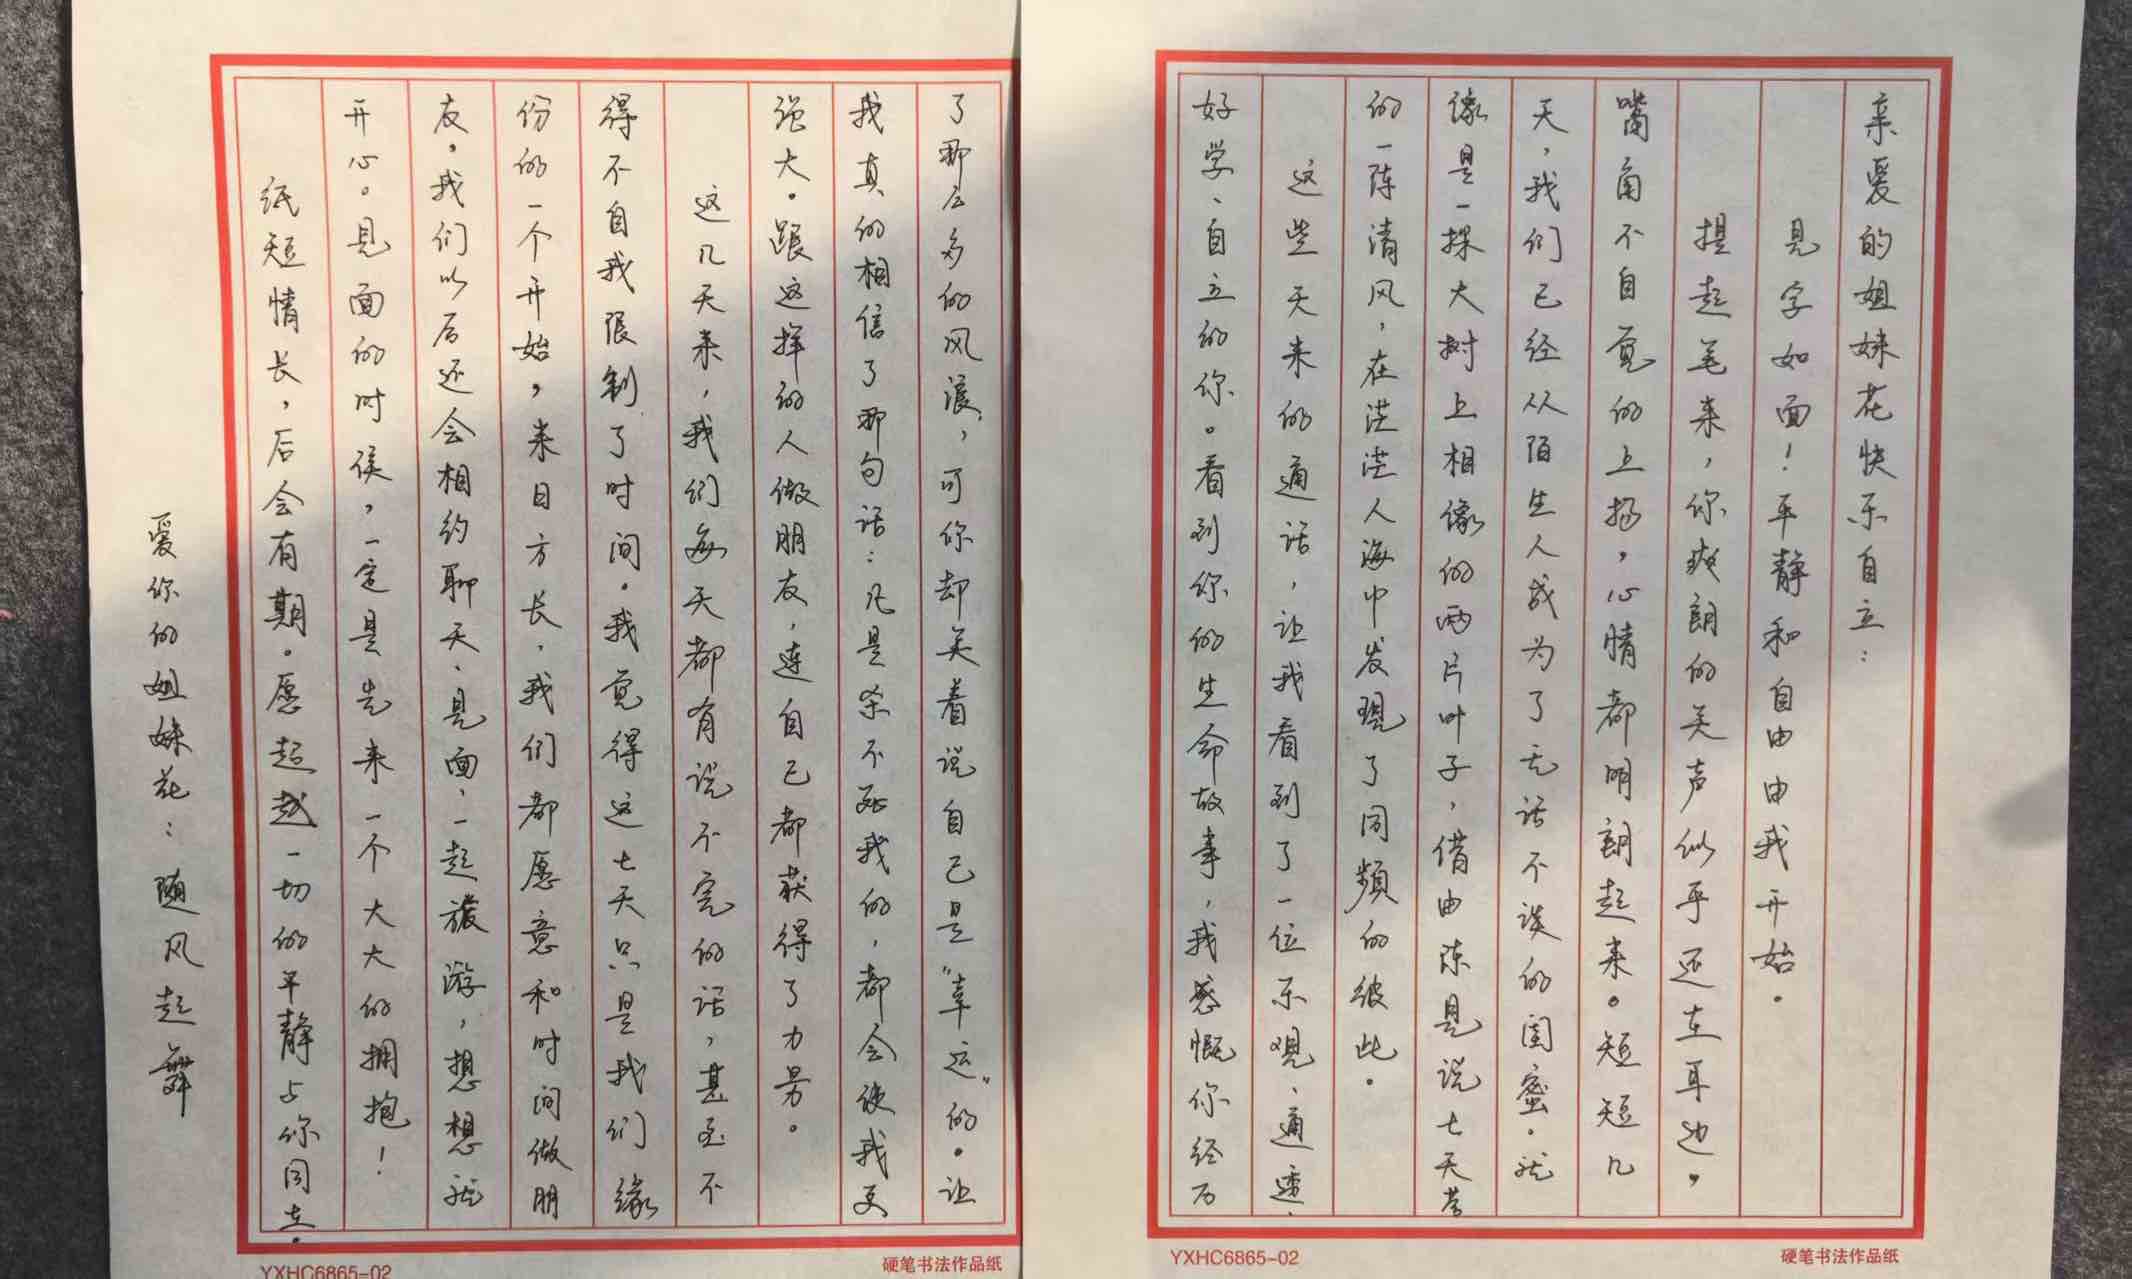 亲爱的姐妹花快乐自立：
见字如面！平静和自由由我开始。
提起笔来，你爽朗的笑声似乎还在耳边，
嘴角不自觉的上扬，心情都明朗起来。短短几
天，我们已经从陌生人成为了无话不谈的闺蜜。就
像是一棵大树上相像的两片叶子，借由陈是说七天营
的一阵清风，在茫茫人海中发现了同频的彼此。
这些天来的通话，让我看到了一位乐观、通透、
好学、自立的你。看到你的生命故事，我感慨你经历
了那么多的风浪，可你却笑着说自己是“幸运”的。让
我真的相信了那句话：凡是杀不死我的，都会使我更
强大。跟这样的人做朋友，连自己都获得了力量。
这几天来，我们每天都有说不完的话，甚至不
得不自我限制了时间。我觉得这七天只是我们缘
份的一个开始，来日方长，我们都愿意和时间做朋
友，我们以后还会相约聊天、见面、一起旅游，想想就
开心。见面的时候，一定是先来一个大大的拥抱！
纸短情长，后会有期。愿超越一切的平静与你同在。
爱你的姐妹花：随风起舞
YXHC6865-02
硬笔书法作品纸
YXHC6865-02
硬笔书法作品纸